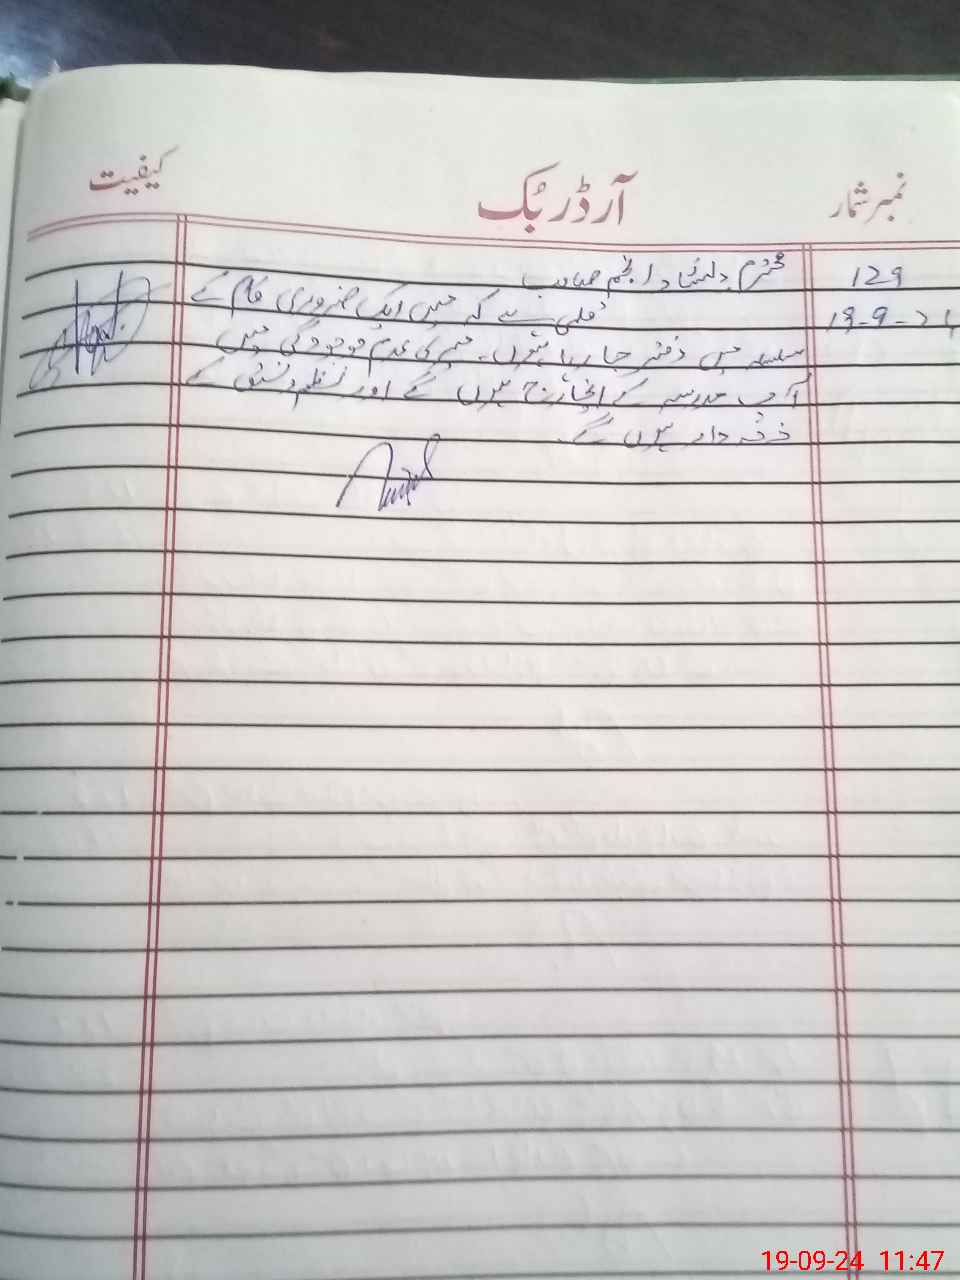 نمبر شمار
آرڈر بُک
کیفیت
129
19-9-24
محترم دلشاد انجم صاحب
ہے کہ میں ایک ضروری کام کے
سلسلہ میں دفتر جا رہا ہوں۔ میری عدم موجودگی میں
آپ مدرسہ کے انچارج ہوں گے اور نظم و نسق کے
ذمہ دار ہوں گے۔
19-09-24 11:47